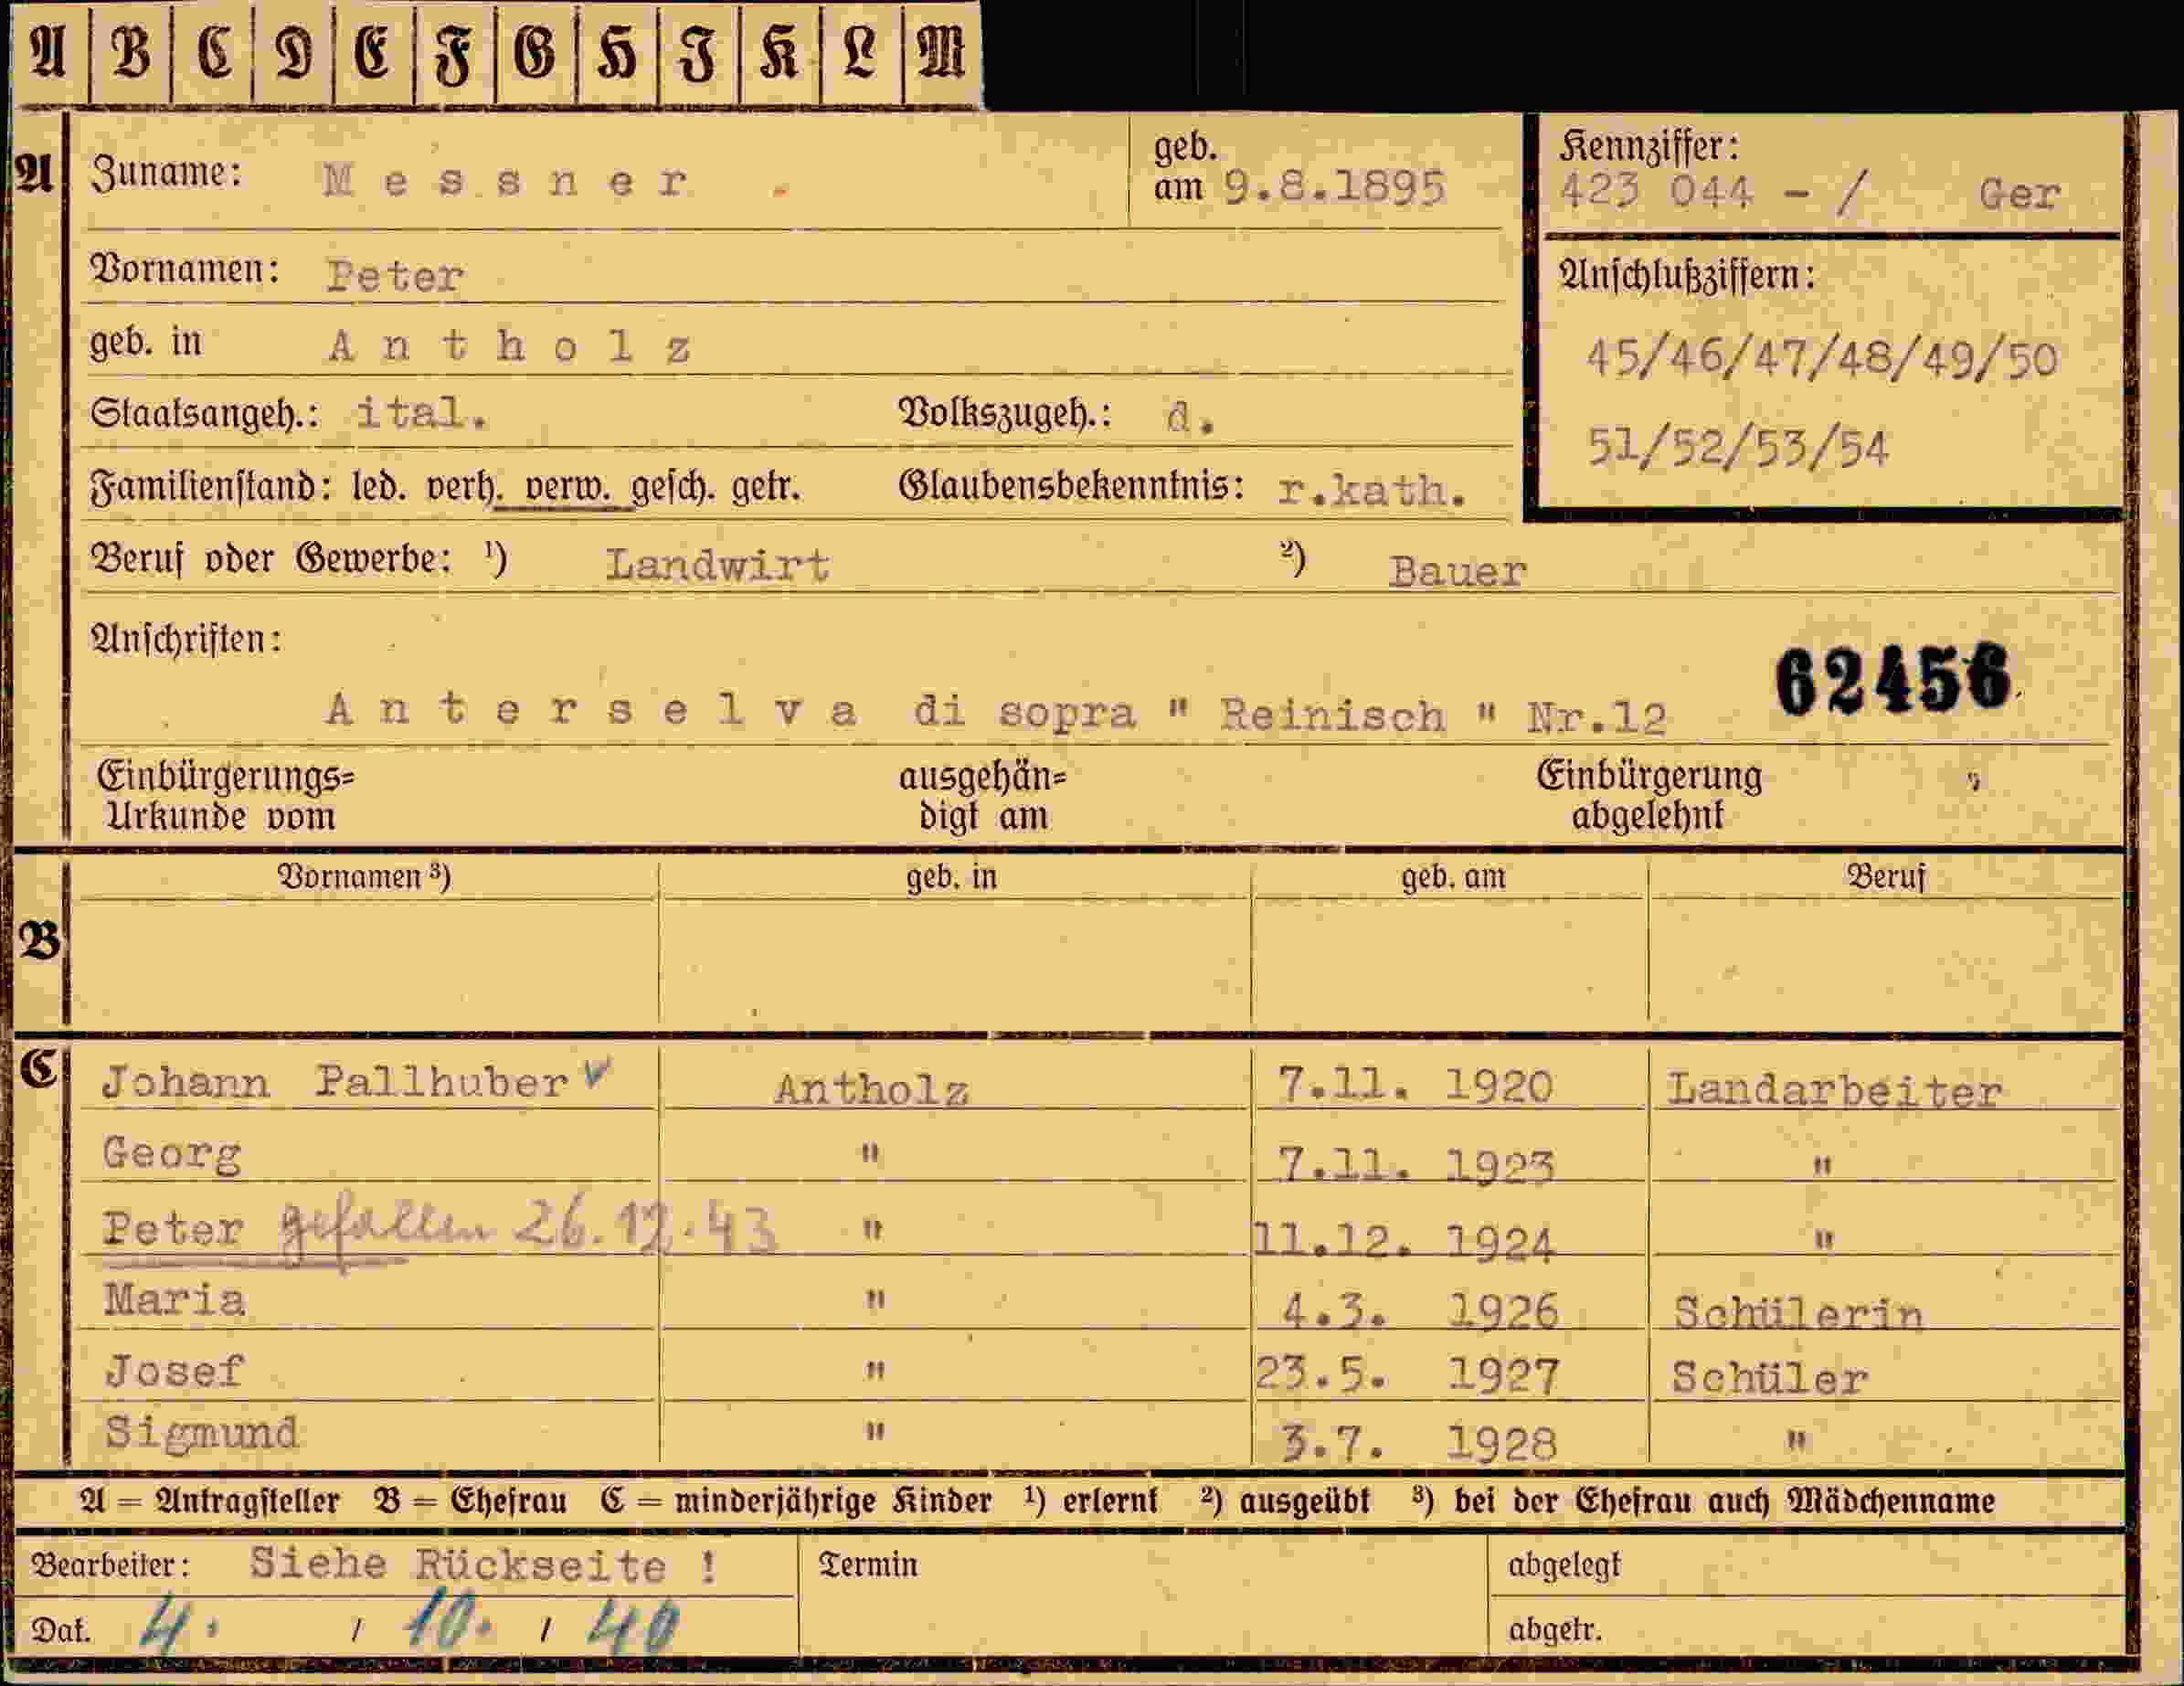 A B C D E F G H I K L M
A Zuname: Messner geb. am 9.8.1895 Kennziffer: 423 044 - / Ger
Vornamen: Peter Anschlußziffern:
geb. in Antholz 45/46/47/48/49/50
Staatsangeh.: ital. Volkszugeh.: d. 51/52/53/54
Familienstand: led. verh. verw. gesch. getr. Glaubensbekenntnis: r.kath.
Beruf oder Gewerbe: ¹) Landwirt ²) Bauer
Anschriften: 62456
Anterselva di sopra " Reinisch " Nr.12
Einbürgerungs= ausgehän= Einbürgerung
Urkunde vom digt am abgelehnt
Vornamen ³) geb. in geb. am Beruf
B
C Johann Pallhuber Antholz 7.11. 1920 Landarbeiter
Georg " 7.11. 1923 "
Peter gefallen 26.12.43 " 11.12. 1924 "
Maria " 4.3. 1926 Schülerin
Josef " 23.5. 1927 Schüler
Sigmund " 3.7. 1928 "
A = Antragsteller B = Ehefrau C = minderjährige Kinder ¹) erlernt ²) ausgeübt ³) bei der Ehefrau auch Mädchenname
Bearbeiter: Siehe Rückseite ! Termin abgelegt
Dat. 4. / 10. / 40 abgetr.